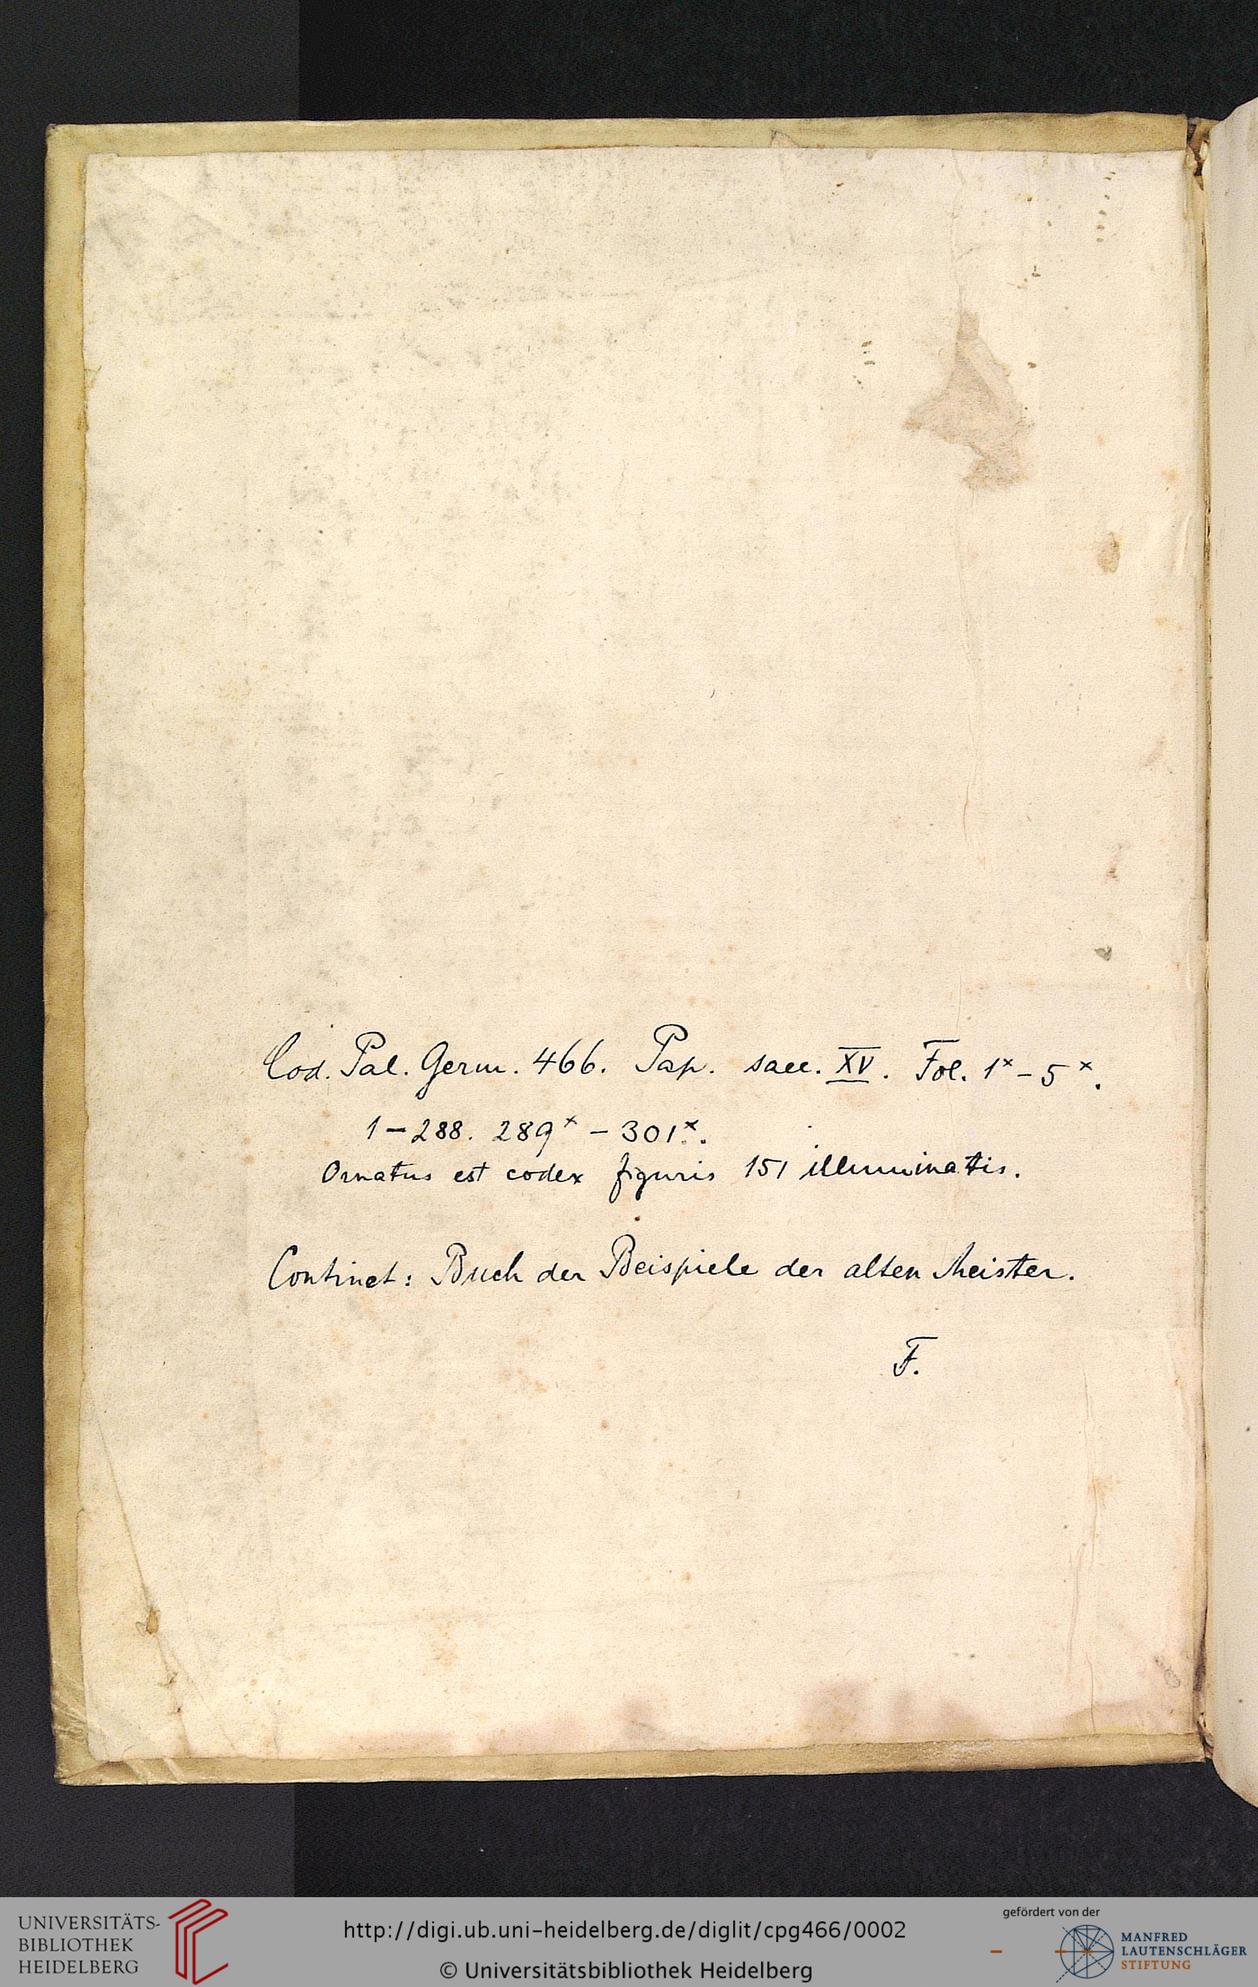 Cod. Pal. Germ. 466. Pap. saec. XV. Fol. 1ˣ–5ˣ.
1–288. 289ˣ–301ˣ.
Ornatus est codex figuris 151 illuminatis.
Continet: Buch der Beispiele der alten Meister.
F.
UNIVERSITÄTS-
BIBLIOTHEK
HEIDELBERG
http://digi.ub.uni-heidelberg.de/diglit/cpg466/0002
© Universitätsbibliothek Heidelberg
gefördert von der
MANFRED
LAUTENSCHLÄGER
STIFTUNG